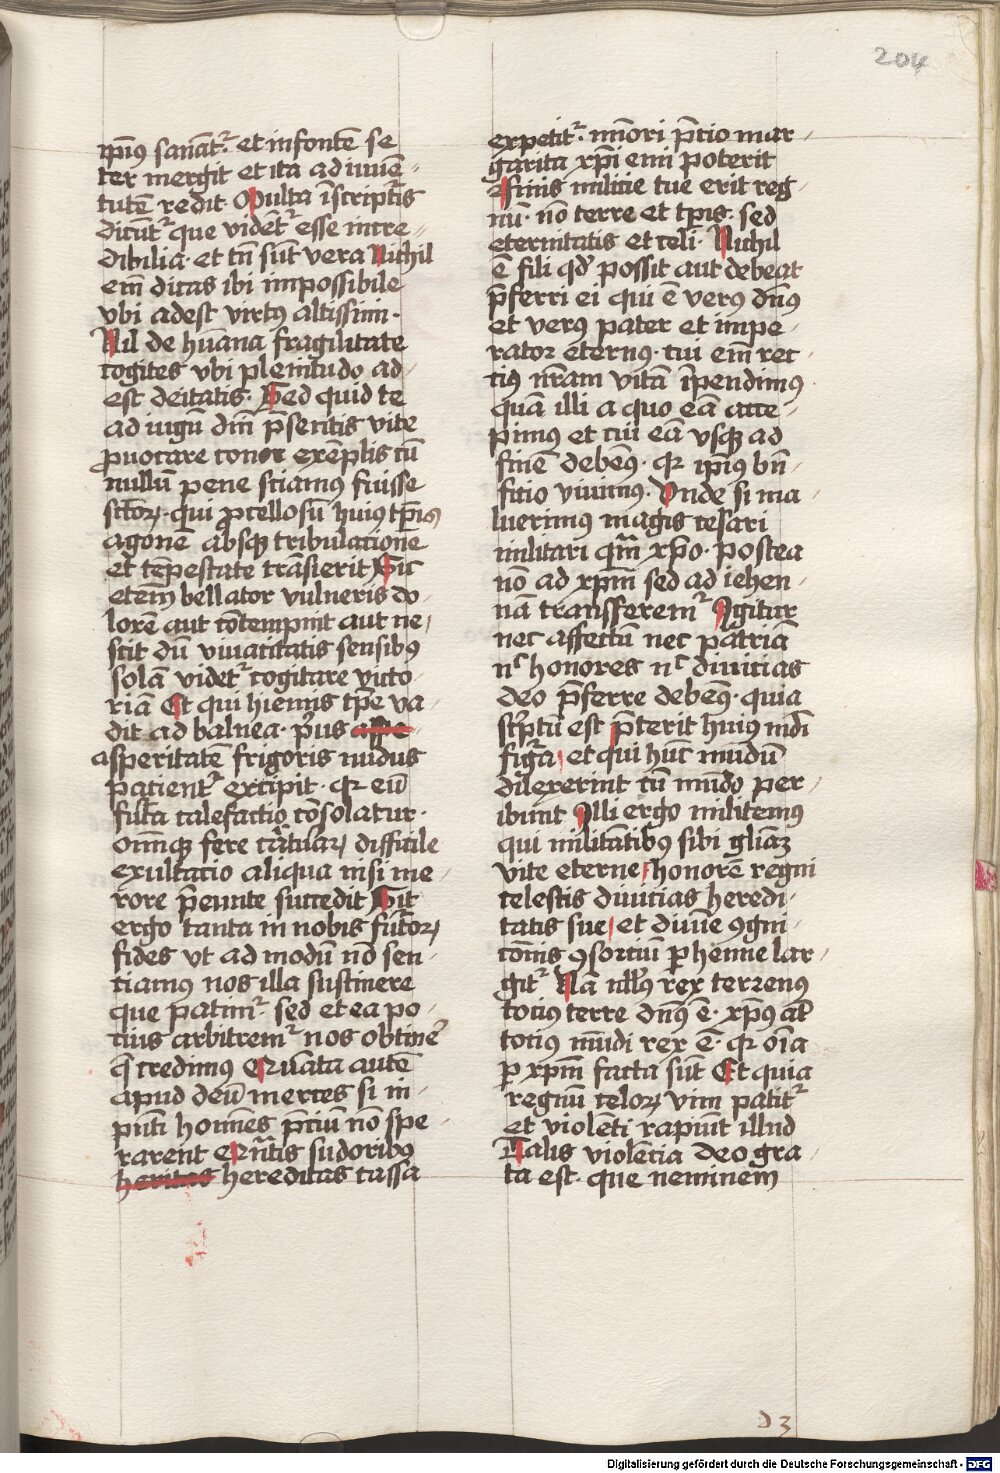 204
ipiꝰ sanāt᷑. et in fontē se
ter mergit et ita ad iuuē
tutē redit Multa ī scriptis
dicūt᷑ que vidēt᷑ esse incre
dibilia. et tn̄ sūt vera Nichil
em̄ dicas ibi impossibile
vbi adest virtꝰ altissimi.
Nil de hūana fragilitate
cogites vbi plenitudo ad
est deitatis. Sed quid te
ad iugū dn̄i p̄sentis vite
ꝓuocare conor exēplis cū
nullū pene sciamꝰ fuisse
sc̄toꝝ. qui ꝓcellosū huiꝰ tp̄is
agonē absqꝫ tribulatione
et tēpestate trāsierit Sic
etem̄ bellator vulneris do
lorē aut cōtempnit aut ne
scit dū viuacitatis sensibꝰ
solā videt᷑ cogitare victo
riā Et qui hiemis tp̄e va
dit ad balnea. p̄us aspe
asperitatē frigoris nudus
patient᷑ excipit. qꝛ eū
fut̄a calefactio cōsolatur.
Om̄iqꝫ fere c̄atuaꝝ difficile
exultatio aliqua nisi me
rore p̄eunte succedit Sit
ergo tanta in nobis futoꝝ
fides vt ad modū nō sen
ciamꝰ nos illa sustinere
que patim᷑. sed et ea po
cius arbitrem᷑ nos obtinē
q̄ credimꝰ Seruāta autē
apud deū merces si in
pūti homīes p̄ciū nō spe
rarent Quātis sudoribꝰ
heritas hereditas cassa
expetit᷑. mīori p̄cio mar
garita xp̄i emi poterit
Finis milicie tue erit reg
nū. nō terre et tp̄is. sed
eternitatis et celi. Nichil
ē fili qd̄ possit aut debeat
p̄ferri ei qui ē verꝰ dn̄s
et verꝰ pater et impe
rator eternꝰ. cui em̄ rec
tiꝰ nr̄am vitā īpendimꝰ
quā illi a quo eā acce
pimꝰ et cui eā vsqꝫ ad
finē debemꝰ. qꝛ ipiꝰ bn̄
ficio viuimꝰ. Vnde si ma
luerimꝰ magis cesari
militari qm̄ xp̄o. postea
nō ad xp̄m sed ad iehen
nā transferem᷑ Igitur
nec affectū nec patriā
nͨ honores nͨ diuicias
deo p̄ferre debemꝰ. quia
scͥptū est p̄terit huiꝰ mdi
figͬa et qui hūc mūdū
dilexerint cū mūdo per
ibunt Illi ergo militemꝰ
qui militātibꝰ sibi gliaꝫ
vite eterne honorē regni
celestis diuicias heredi
tatis sue et diuīe ꝯgni
cōnis ꝯsorciū ꝑhenne lar
git᷑ Nā nllꝰ rex terrenꝰ
tociꝰ terre dn̄s ē. xp̄s at̄
tociꝰ mūdi rex ē. qꝛ oīa
ꝑ xp̄m facta sūt Et quia
regnū celoꝝ vim patit᷑
et violēti rapiūt illud
Talis violēcia deo gra
ta est. que neminem
D 3
Digitalisierung gefördert durch die Deutsche Forschungsgemeinschaft - DFG